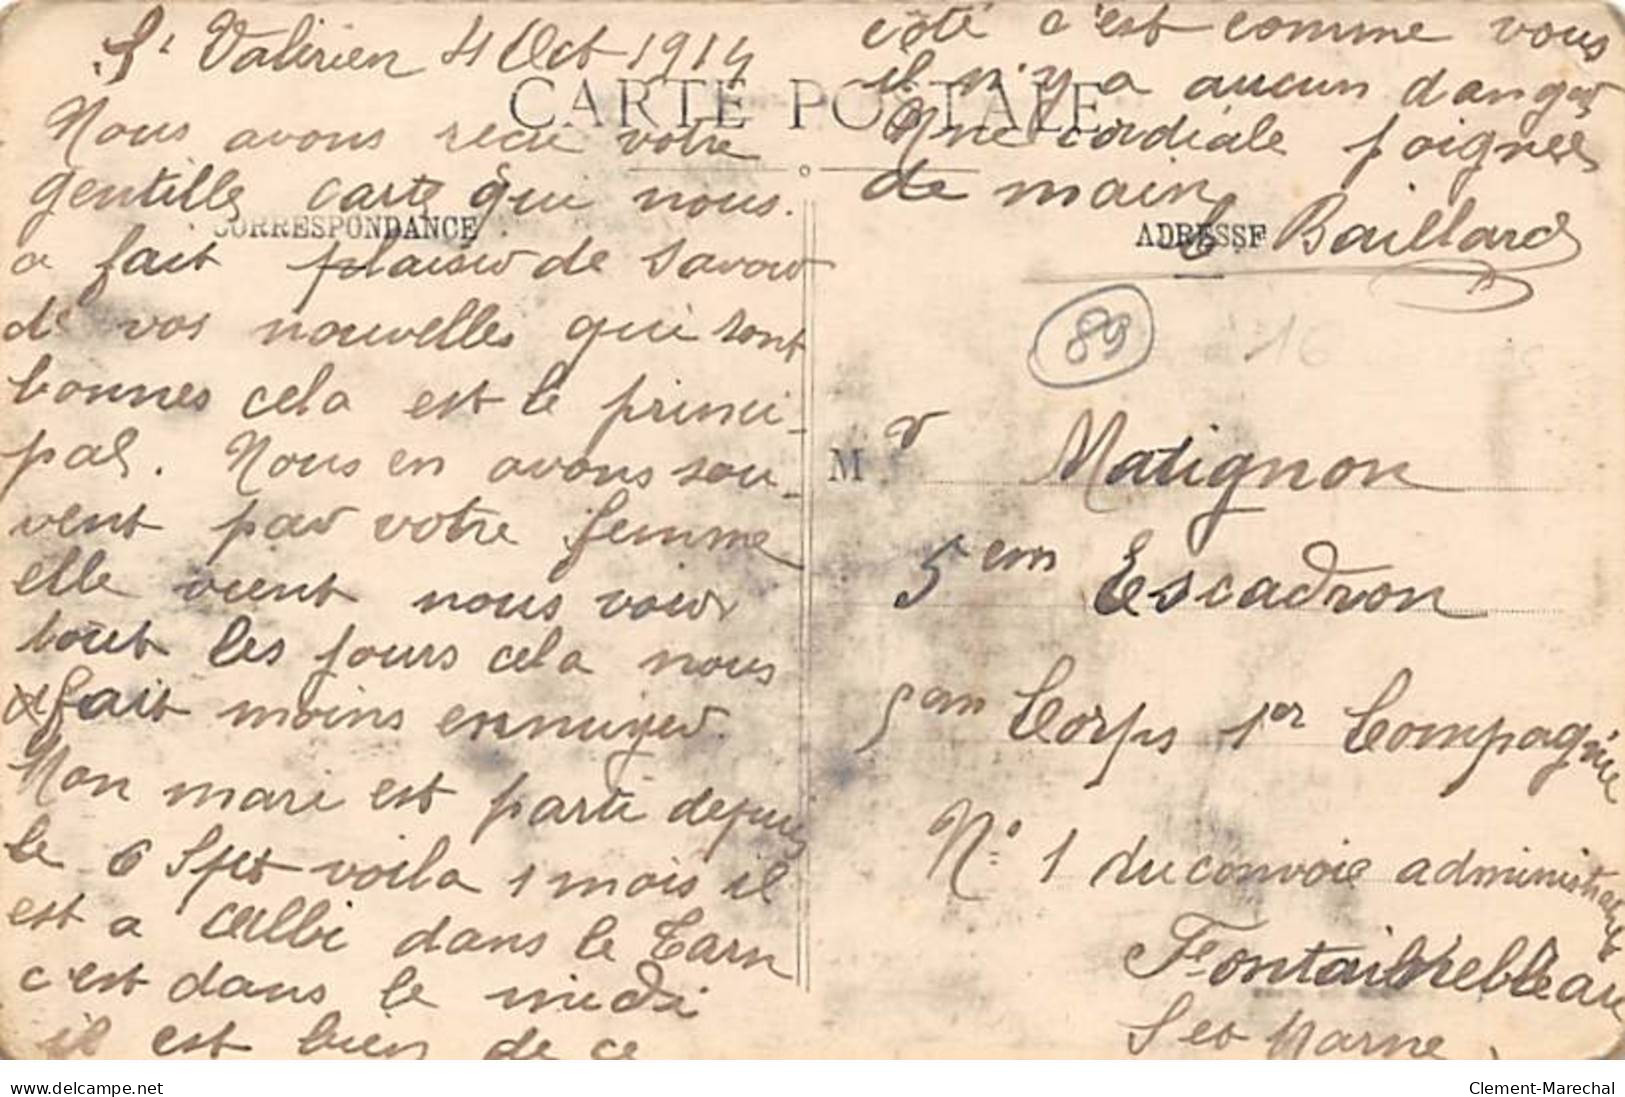 St Valérien 4 Oct 1914
CARTE POSTALE
Nous avons reçu votre
gentille carte qui nous
CORRESPONDANCE
a fait plaisir de savoir
de vos nouvelles qui sont
bonnes cela est le princi-
pal. Nous en avons sou-
vent par votre femme
elle vient nous voir
tout les jours cela nous
fait moins ennuyer.
Mon mari est parti depuis
le 6 Spet voila 1 mois il
est a Albi dans le Tarn
c'est dans le midi
il est bien de ce
côté c'est comme vous
il n'y a aucun danger
Une cordiale poignée
de main
ADRESSE
Baillard
89
16
M r Matignon
5em Escadron
5em Corps 1er Compagnie
N° 1 du convoie administratif
Fontainebleau
Set Marne
delcampe.net
Clement-Marechal